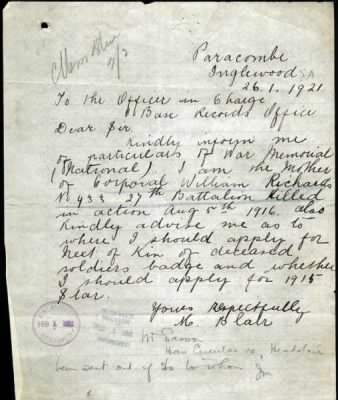 Paracombe
Inglewood SA
26.1.1921
To the Officer in Charge
Base Records Office
Dear Sir
Kindly inform me
of particulars of War Memorial
(National). I am the Mother
of Corporal William Richards
No 433 27th Battalion Killed
in action Aug 5th 1916. also
Kindly advise me as to
where I should apply for
Next of Kin of deceased
soldiers badge and whether
I should apply for 1915
Star.
Yours respectfully
M. Blair
Has Circular re Headstone
been sent out if so to whom